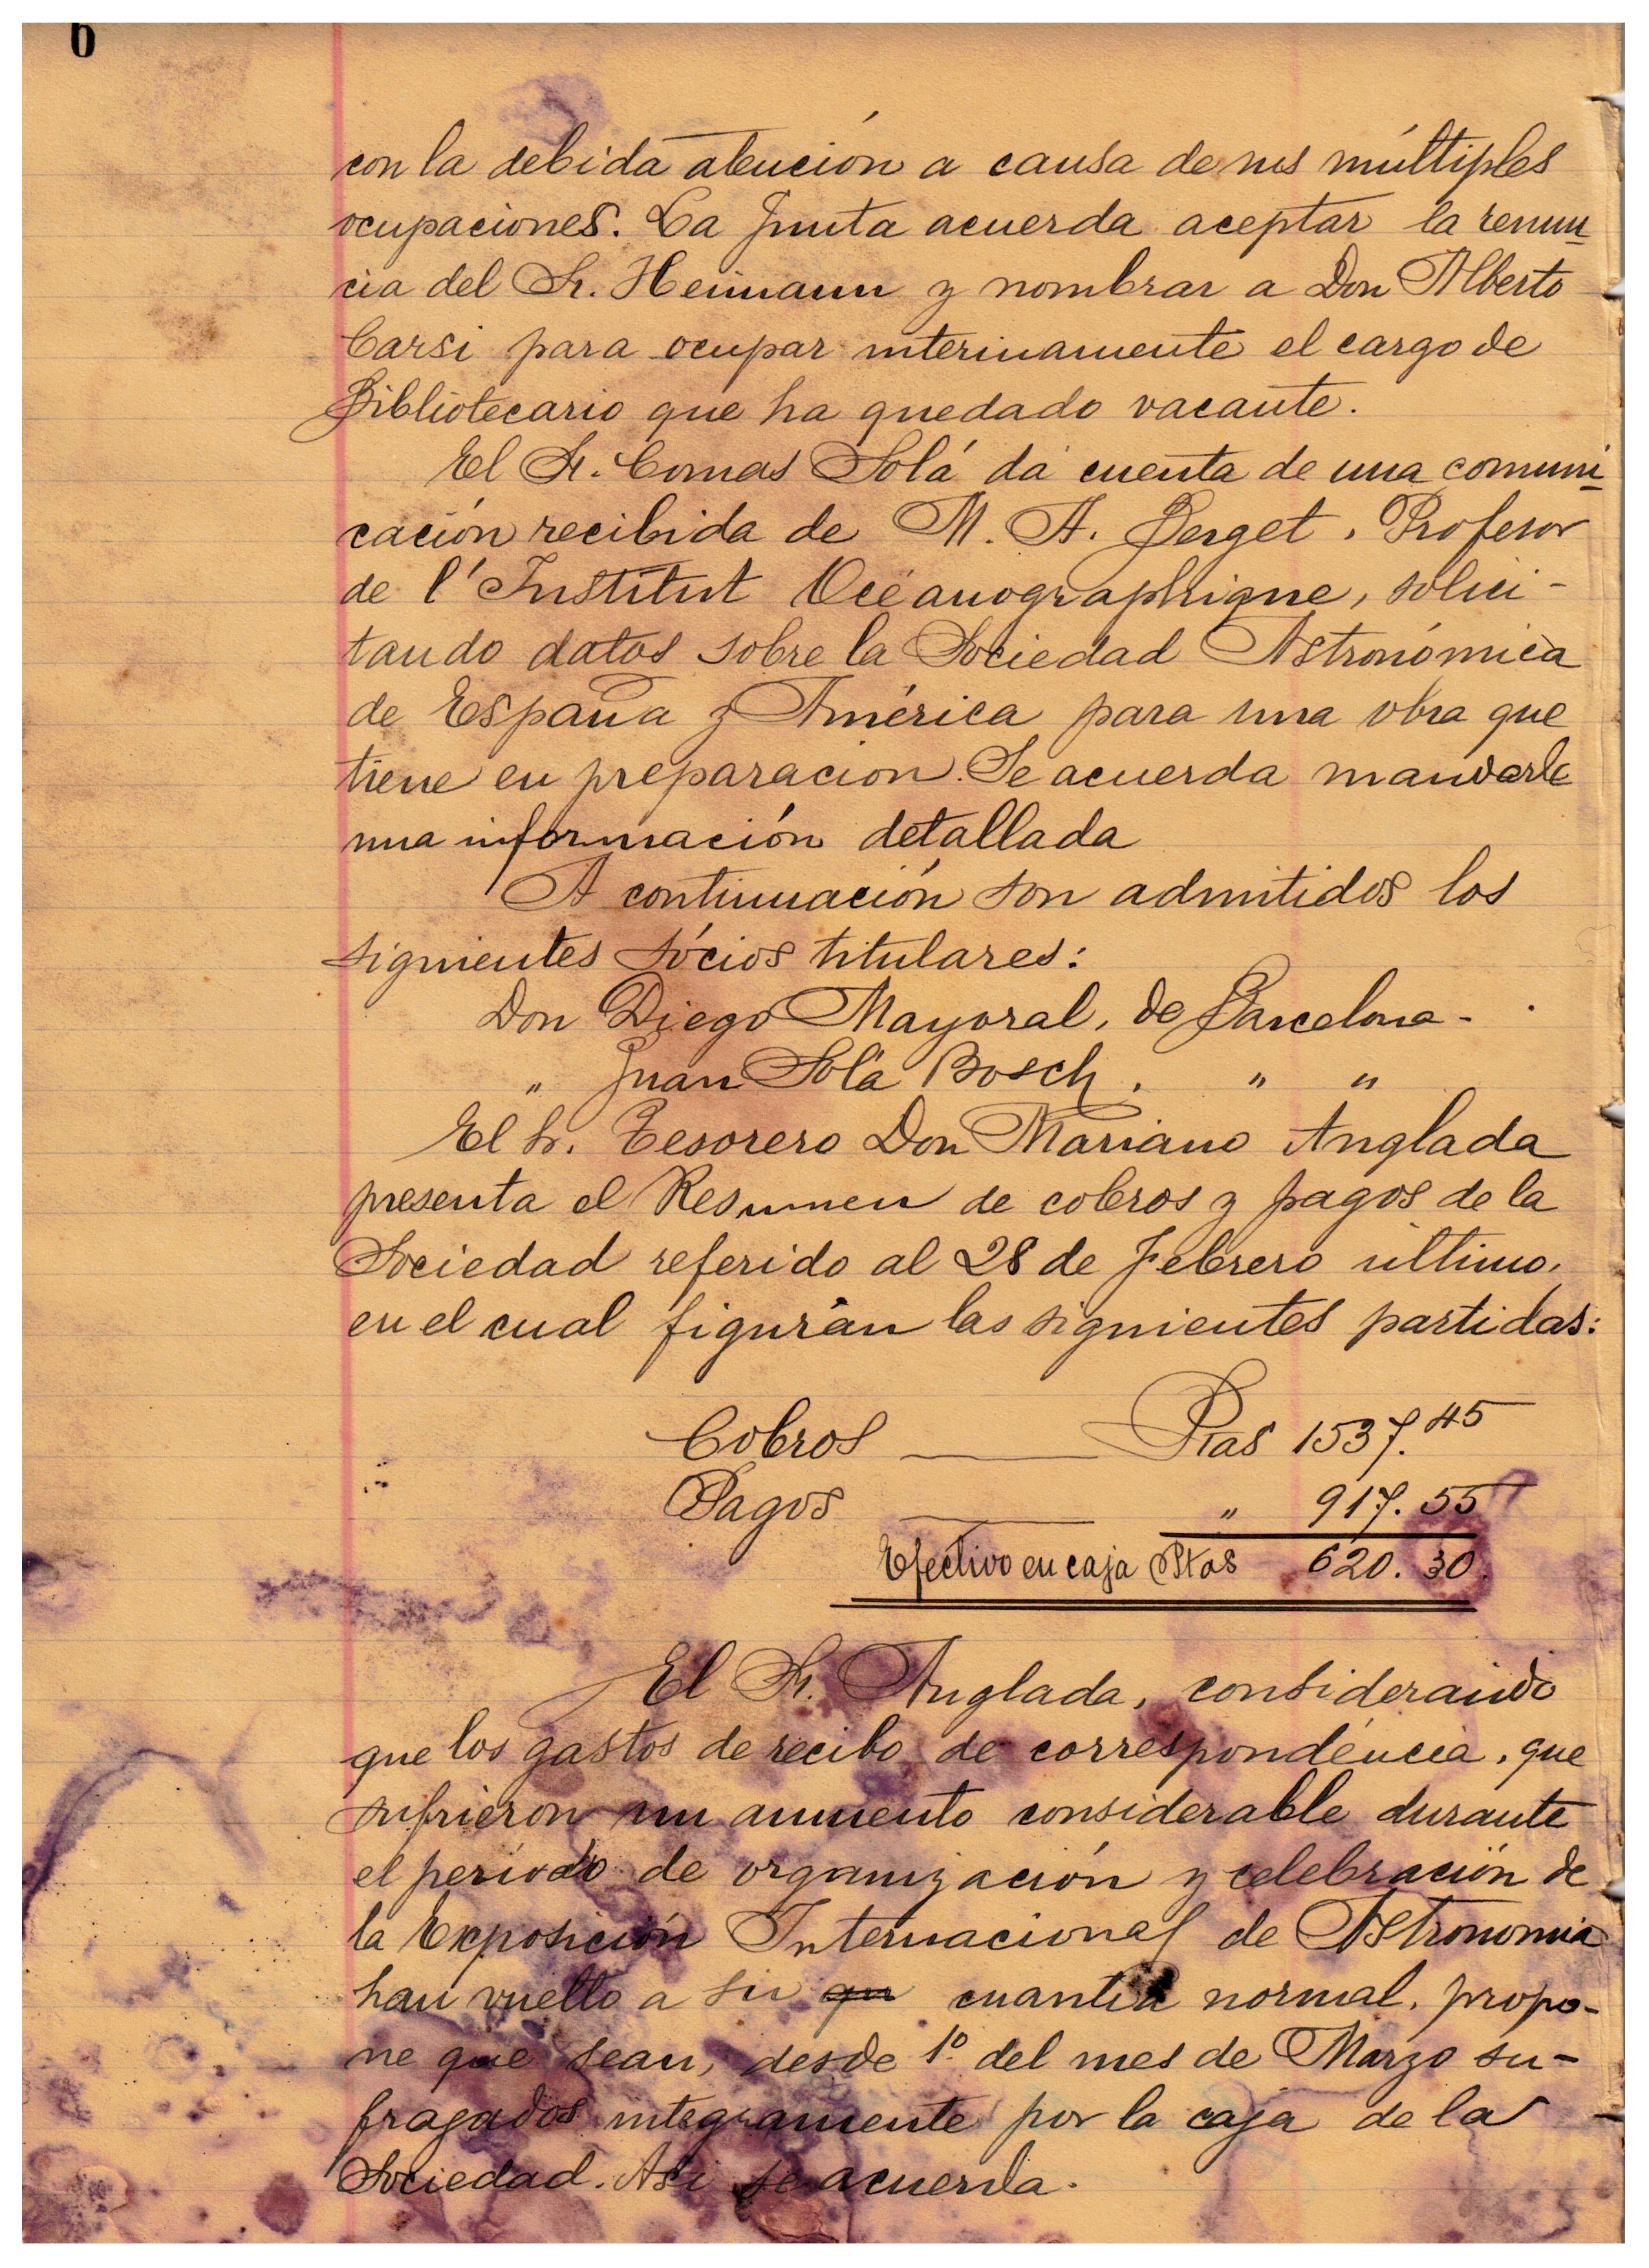 6
con la debida atención a causa de sus múltiples
ocupaciones. La Junta acuerda aceptar la renun
cia del Sr. Heimann y nombrar a Don Alberto
Carsi para ocupar interinamente el cargo de
Bibliotecario que ha quedado vacante.
El Sr. Comas Solá da cuenta de una comuni
cación recibida de M. A. Berget, Profesor
de l'Institut Océanographique, solici-
tando datos sobre la Sociedad Astronómica
de España y América para una obra que
tiene en preparación. Se acuerda mandarle
una información detallada
A continuación son admitidos los
siguientes sócios titulares:
Don Diego Mayoral, de Barcelona -
" Juan Solá Bosch, " "
El Sr. Tesorero Don Mariano Anglada
presenta el Resumen de cobros y pagos de la
Sociedad referido al 28 de Febrero último,
en el cual figuran las siguientes partidas:
Cobros Ptas 1537.45
Pagos " 917.55
Efectivo en caja Ptas 620.30
El Sr. Anglada, considerando
que los gastos de recibo de correspondencia, que
sufrieron un aumento considerable durante
el período de organización y celebración de
la Exposición Internacional de Astronomía
han vuelto a su qu cuantía normal, propo-
ne que sean, desde 1º del mes de Marzo su-
fragados integramente por la caja de la
Sociedad. Asi se acuerda.